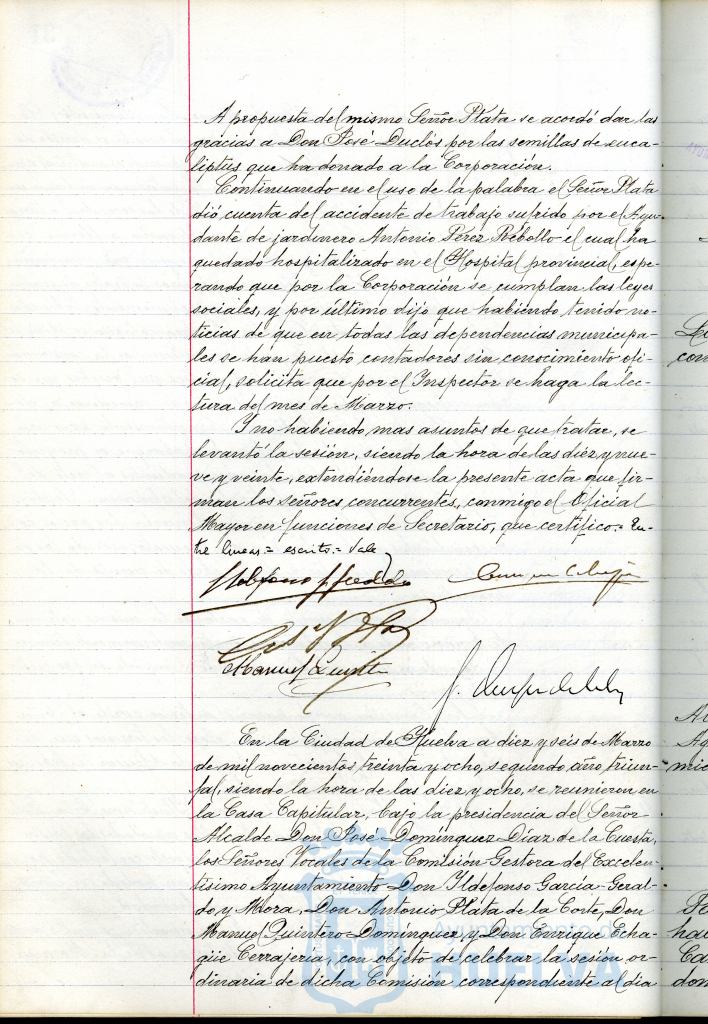 A propuesta del mismo Señor Plata se acordó dar las
gracias a Don José Duclós por las semillas de euca-
liptus que ha donado a la Corporación.
Continuando en el uso de la palabra el Señor Plata
dió cuenta del accidente de trabajo sufrido por el Ayu-
dante de jardinero Antonio Pérez Rebollo el cual ha
quedado hospitalizado en el Hospital provincial, espe-
rando que por la Corporación se cumplan las leyes
sociales, y por último dijo que habiéndo tenido no-
ticias de que en todas las dependencias municipa-
les se han puesto contadores sin conocimiento ofi-
cial, solicita que por el Inspector se haga la lec-
tura del mes de Marzo.
Y no habiendo mas asuntos de que tratar, se
levantó la sesión, siendo la hora de las diez y nue-
ve y veinte, extendiéndose la presente acta que fir-
man los señores concurrentes, conmigo el Oficial
Mayor en funciones de Secretario, que certifico.= En-
tre lineas = escrito.= Vale
Manuel Quintero
En la Ciudad de Huelva a diez y seis de Marzo
de mil novecientos treinta y ocho, segundo año triun-
fal, siendo la hora de las diez y ocho, se reunieron en
la Casa Capitular, bajo la presidencia del Señor
Alcalde Don José Domínguez Díaz de la Cuesta,
los Señores Vocales de la Comisión Gestora del Excelen-
tísimo Ayuntamiento Don Ildefonso García-Geral-
do y Mora, Don Antonio Plata de la Corte, Don
Manuel Quintero Domínguez y Don Enrique Echa-
güe Cerrajería, con objeto de celebrar la sesión or-
dinaria de dicha Comisión correspondiente al día
Ayuntamiento de
HUELVA